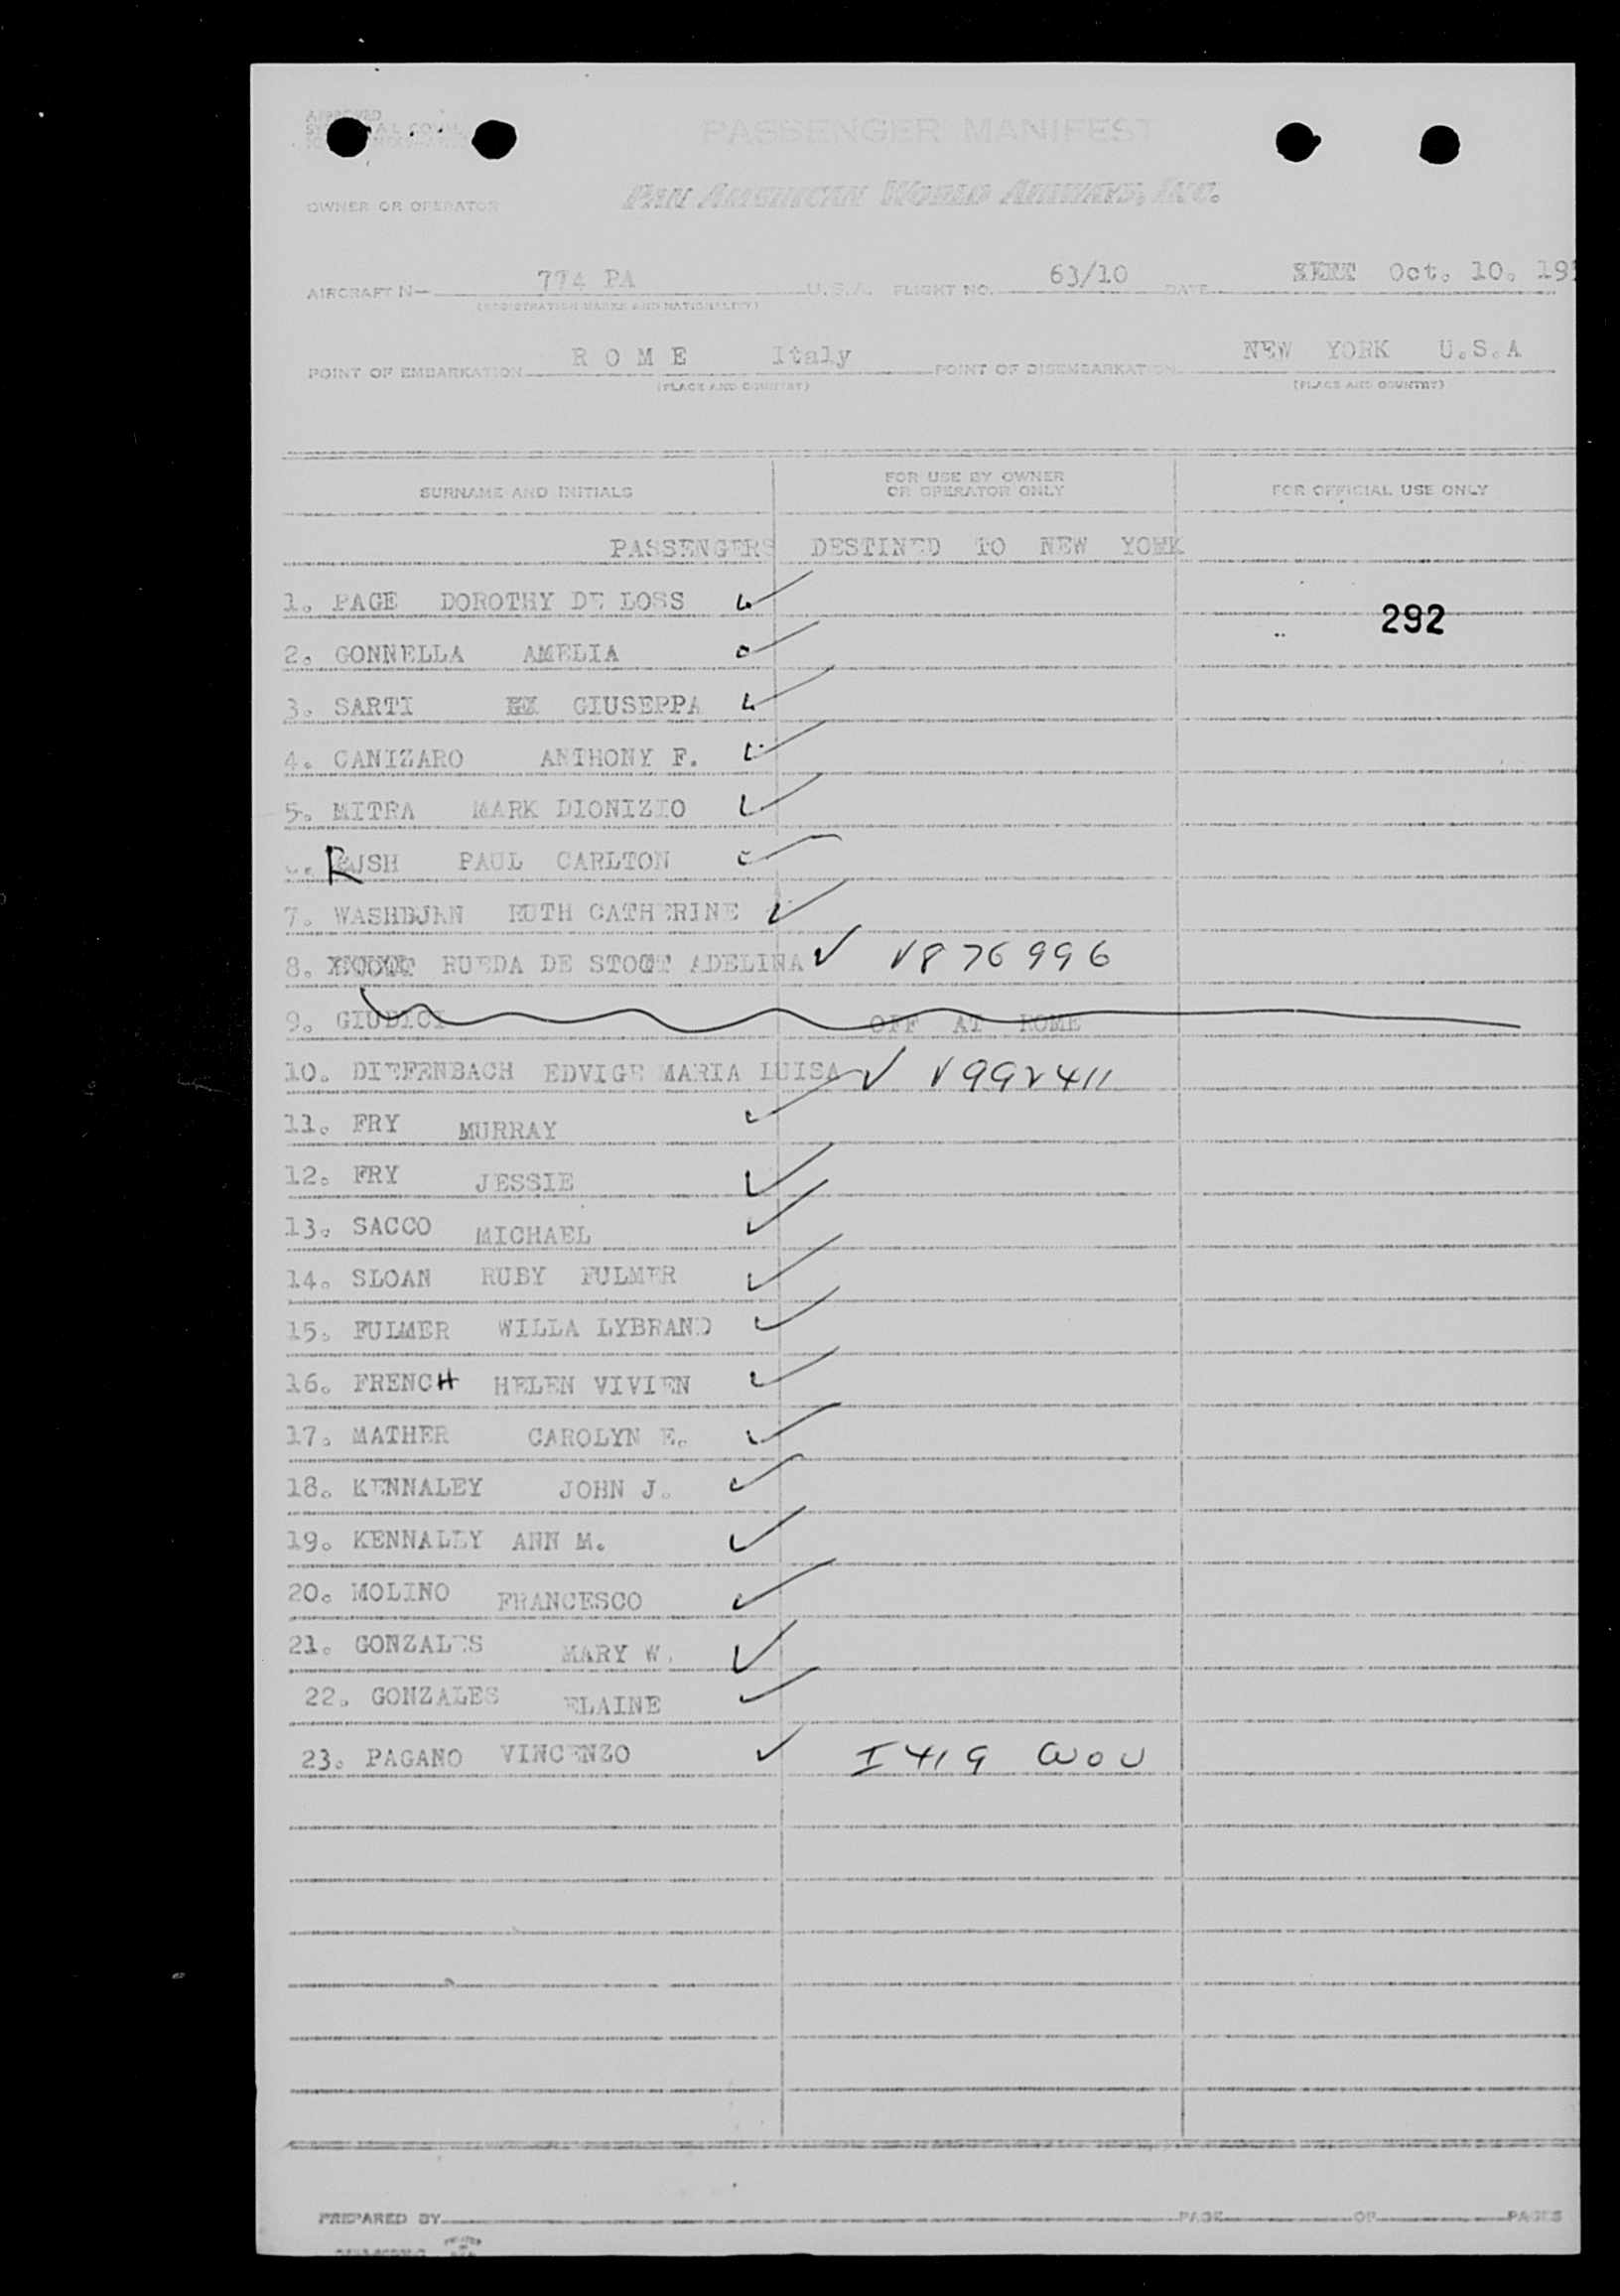 APPROVED
PASSENGER MANIFEST
OWNER OR OPERATOR PAN AMERICAN WORLD AIRWAYS, INC.
AIRCRAFT N— 774 PA U.S.A. FLIGHT NO. 63/10 DATE Oct. 10. 19
(REGISTRATION MARKS AND NATIONALITY)
POINT OF EMBARKATION R O M E Italy POINT OF DISEMBARKATION NEW YORK U.S.A
(PLACE AND COUNTRY) (PLACE AND COUNTRY)
SURNAME AND INITIALS FOR USE BY OWNER OR OPERATOR ONLY FOR OFFICIAL USE ONLY
PASSENGERS DESTINED TO NEW YORK
1. PAGE DOROTHY DE LOSS
292
2. GONNELLA AMELIA
3. SARTI GIUSEPPA
4. CANIZARO ANTHONY F.
5. MITRA MARK DIONIZIO
RUSH PAUL CARLTON
7. WASHBURN RUTH CATHERINE
8. RUEDA DE STOGT ADELINA V876996
9. GIUDICI OFF AT ROME
10. DIEFENBACH EDVIGE MARIA LUISA V992411
11. FRY MURRAY
12. FRY JESSIE
13. SACCO MICHAEL
14. SLOAN RUBY FULMER
15. FULMER WILLA LYBRAND
16. FRENCH HELEN VIVIEN
17. MATHER CAROLYN E.
18. KENNALEY JOHN J.
19. KENNALLY ANN M.
20. MOLINO FRANCESCO
21. GONZALES MARY W.
22. GONZALES ELAINE
23. PAGANO VINCENZO I 419
PREPARED BY PAGE OF PAGES